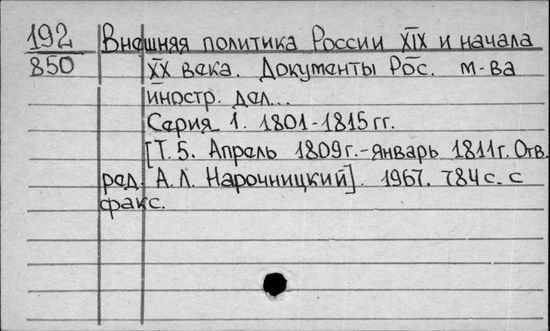 192 Внешняя политика России XIX и начала
850 XX века. Документы Рос. м-ва
иностр. дел...
Серия 1. 1801-1815 гг.
[Т. 5. Апрель 1809 г.-январь 1811 г. Отв.
ред. А. Л. Нарочницкий]. 1967. 784 с. с
факс.